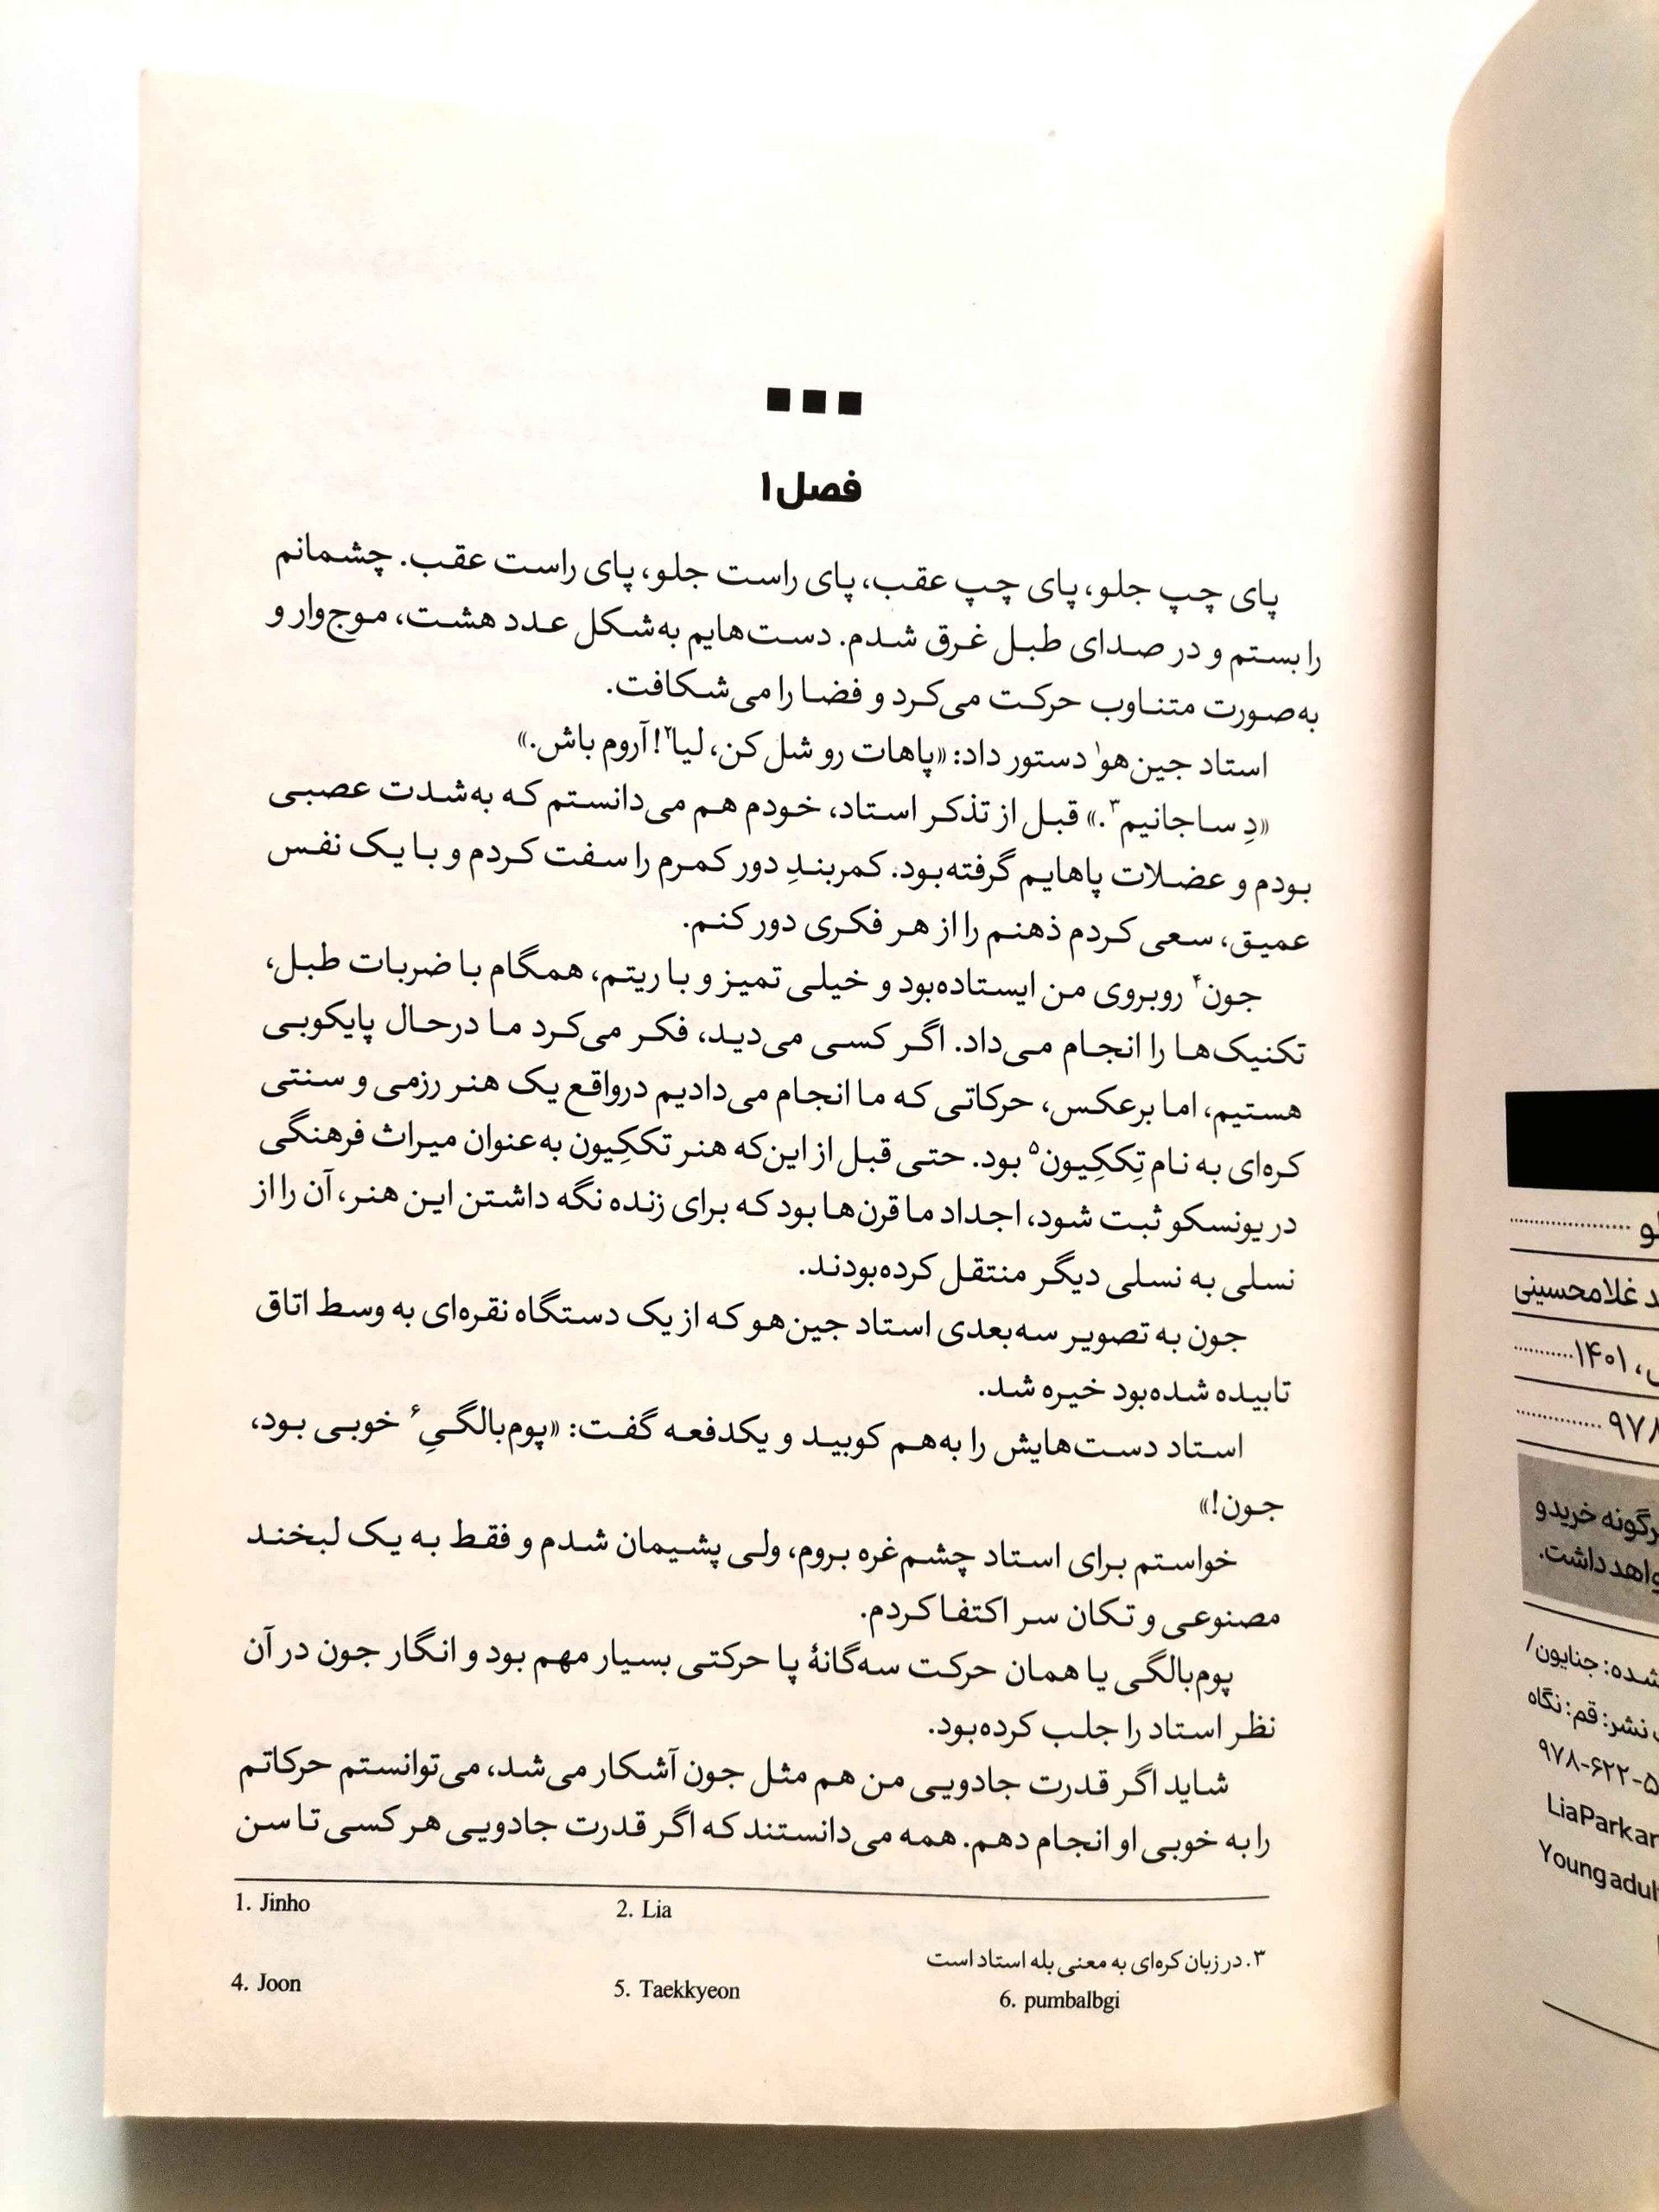 فصل ۱
پای چپ جلو، پای چپ عقب، پای راست جلو، پای راست عقب. چشمانم
را بستم و در صدای طبل غرق شدم. دست‌هایم به‌شکل عدد هشت، موج‌وار و
به‌صورت متناوب حرکت می‌کرد و فضا را می‌شکافت.
استاد جین‌هو۱ دستور داد: «پاهات رو شل کن، لیا۲! آروم باش.»
«دِ ساجانیم۳.» قبل از تذکر استاد، خودم هم می‌دانستم که به‌شدت عصبی
بودم و عضلات پاهایم گرفته‌بود. کمربندِ دور کمرم را سفت کردم و با یک نفس
عمیق، سعی کردم ذهنم را از هر فکری دور کنم.
جون۴ روبروی من ایستاده‌بود و خیلی تمیز و با ریتم، همگام با ضربات طبل،
تکنیک‌ها را انجام می‌داد. اگر کسی می‌دید، فکر می‌کرد ما درحال پایکوبی
هستیم، اما برعکس، حرکاتی که ما انجام می‌دادیم درواقع یک هنر رزمی و سنتی
کره‌ای به نام تِککِیون۵ بود. حتی قبل از این‌که هنر تککِیون به‌عنوان میراث فرهنگی
در یونسکو ثبت شود، اجداد ما قرن‌ها بود که برای زنده نگه داشتن این هنر، آن را از
نسلی به نسلی دیگر منتقل کرده‌بودند.
جون به تصویر سه‌بعدی استاد جین‌هو که از یک دستگاه نقره‌ای به وسط اتاق
تابیده شده‌بود خیره شد.
استاد دست‌هایش را به‌هم کوبید و یکدفعه گفت: «پوم‌بالگیِ۶ خوبی بود،
جون!»
خواستم برای استاد چشم‌غره بروم، ولی پشیمان شدم و فقط به یک لبخند
مصنوعی و تکان سر اکتفا کردم.
پوم‌بالگی یا همان حرکت سه‌گانهٔ پا حرکتی بسیار مهم بود و انگار جون در آن
نظر استاد را جلب کرده‌بود.
شاید اگر قدرت جادویی من هم مثل جون آشکار می‌شد، می‌توانستم حرکاتم
را به خوبی او انجام دهم. همه می‌دانستند که اگر قدرت جادویی هر کسی تا سن
1. Jinho
2. Lia
۳. در زبان کره‌ای به معنی بله استاد است
4. Joon
5. Taekkyeon
6. pumbalbgi
غلامحسینی
۱۴۰۱
۹۷۸
خرید و
داشت.
شده: جنایون/
نشر: قم: نگاه
۹۷۸-۶۲۲-۵
Lia Park an
Young adul